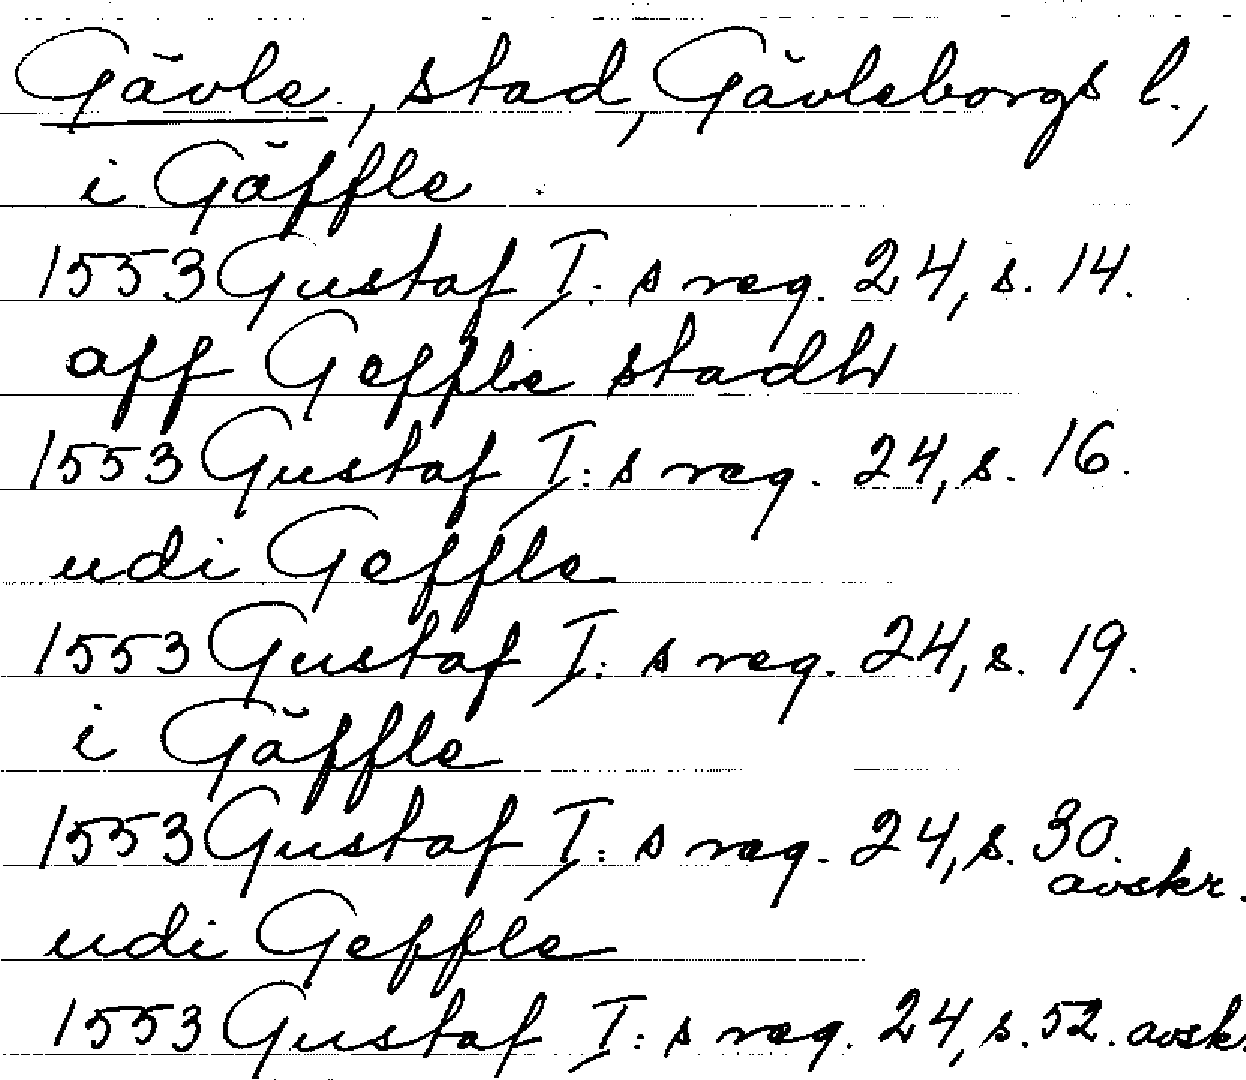 Gävle, stad, Gävleborgs l.,
i Gäffle
1553 Gustaf I: s reg. 24, s. 14.
aff Geffle stadh
1553 Gustaf I: s reg. 24, s. 16.
udi Geffle
1553 Gustaf I: s reg. 24, s. 19.
i Gäffle
1553 Gustaf I: s reg. 24, s. 30.
avskr.
udi Geffle
1553 Gustaf I: s reg. 24, s. 52. avskr.